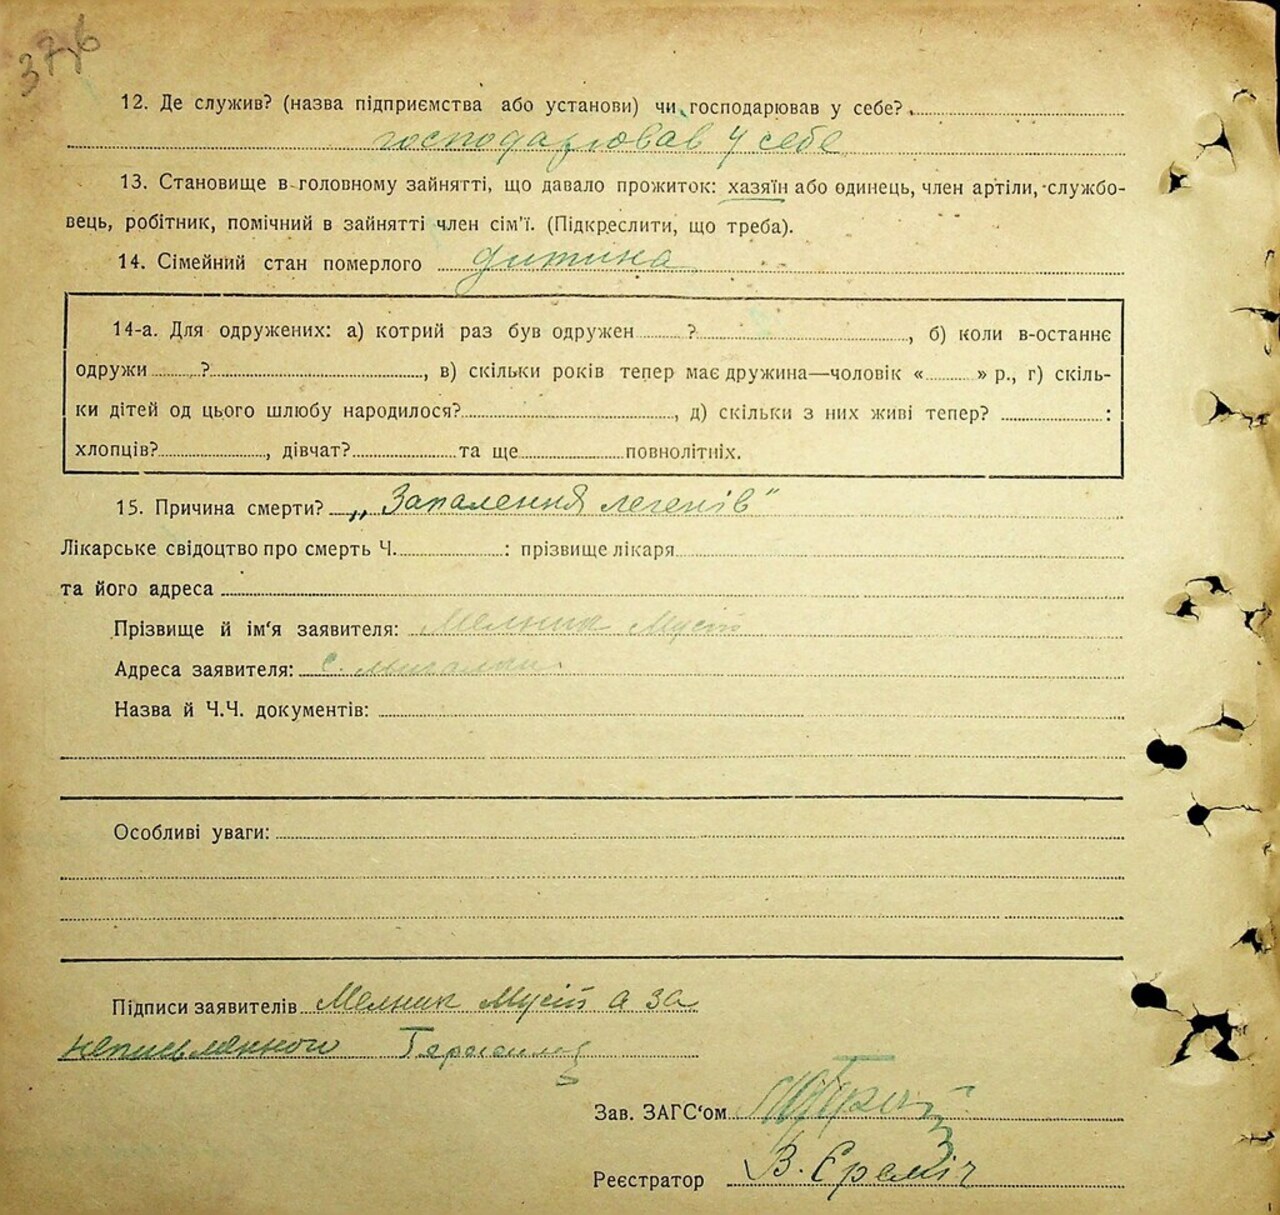 376
12. Де служив? (назва підприємства або установи) чи господарював у себе?
господарював у себе
13. Становище в головному зайнятті, що давало прожиток: хазяїн або одинець, член артіли, службо-
вець, робітник, помічний в зайнятті член сім'ї. (Підкреслити, що треба).
14. Сімейний стан померлого дитина
14-а. Для одружених: а) котрий раз був одружен ? , б) коли в-останнє
одружи ? , в) скільки років тепер має дружина—чоловік « » р., г) скіль-
ки дітей од цього шлюбу народилося? , д) скільки з них живі тепер? :
хлопців? , дівчат? та ще повнолітніх.
15. Причина смерти? „Запалення легенів"
Лікарське свідоцтво про смерть Ч. : прізвище лікаря
та його адреса
Прізвище й ім'я заявителя: Мельник Мусій
Адреса заявителя: с.
Назва й Ч.Ч. документів:
Особливі уваги:
Підписи заявителів Мелник Мусій а за
неписьменного
Зав. ЗАГС'ом
Реєстратор В. Єреміч